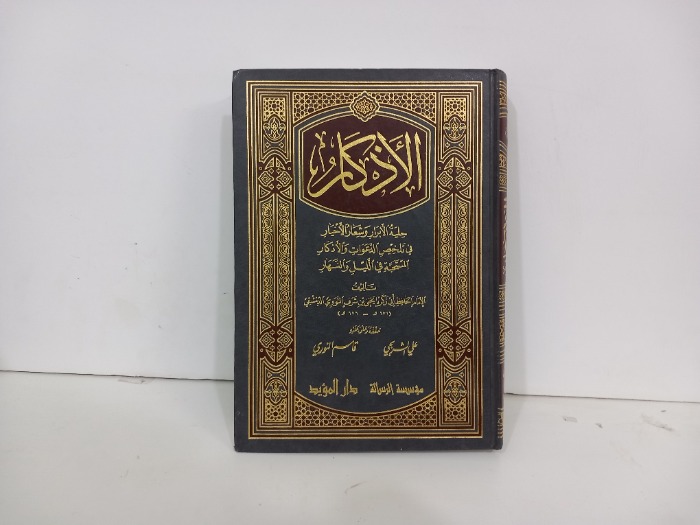 الأذكار
حلية الأبرار وشعار الأخيار
في تلخيص الدعوات والأذكار
المستحبة في الليل والنهار
تأليف
الإمام الحافظ أبي زكريا يحيى بن شرف النووي الدمشقي
(٦٣١ هـ - ٦٧٦ هـ)
علي الشربجي قاسم النوري
مؤسسة الرسالة دار المؤيد